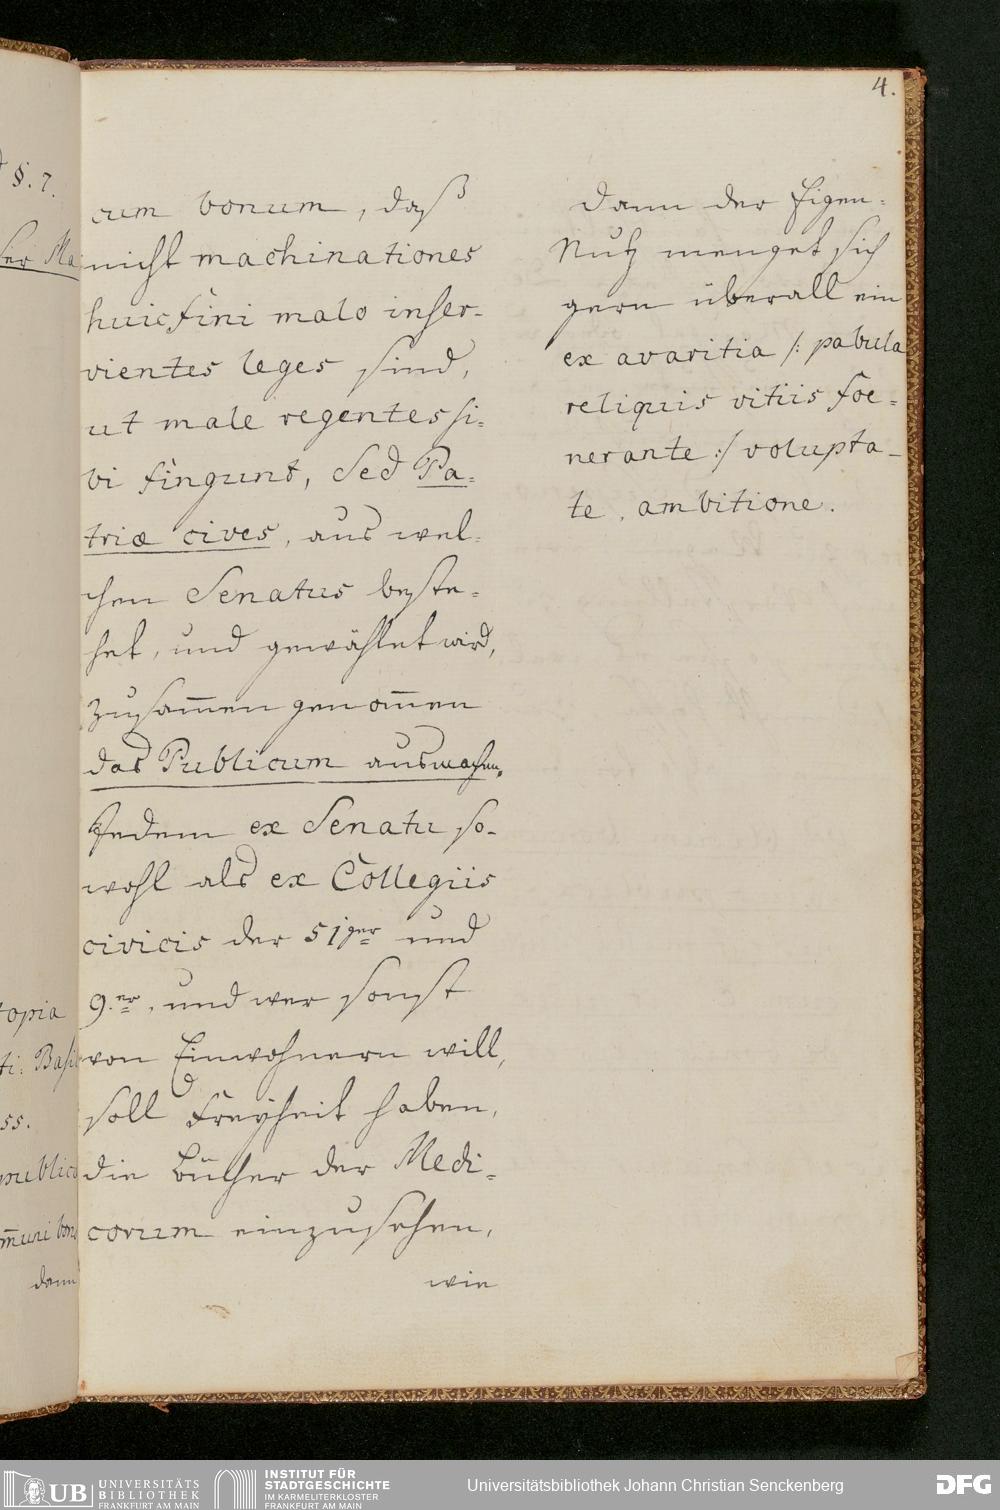 4.
cum bonum, daß
nicht machinationes
huic fini malo inser-
vientes leges sind,
ut male regentes si-
bi fingunt, sed Pa-
triæ cives, aus wel-
chen Senatus beste-
het, und gewählet wird,
zusam̅en genom̅en
das Publicum ausmachen.
Jedem ex Senatu so-
wohl als ex Collegiis
civicis der 51ger und
9.er, und wer sonst
von Einwohnern will,
soll Freyheit haben,
die Bücher der Medi-
corum einzusehen,
wie
dann der Eigen-
Nutz menget sich
gern überall ein
ex avaritia /: pabula
reliquis vitiis foe-
nerante :/ volupta-
te, ambitione.
§. 7.
ser Ma
topia
ti: Basi
55.
publico
m̅uni bono
dann
UB UNIVERSITÄTS
BIBLIOTHEK
FRANKFURT AM MAIN
INSTITUT FÜR
STADTGESCHICHTE
IM KARMELITERKLOSTER
FRANKFURT AM MAIN
Universitätsbibliothek Johann Christian Senckenberg
DFG